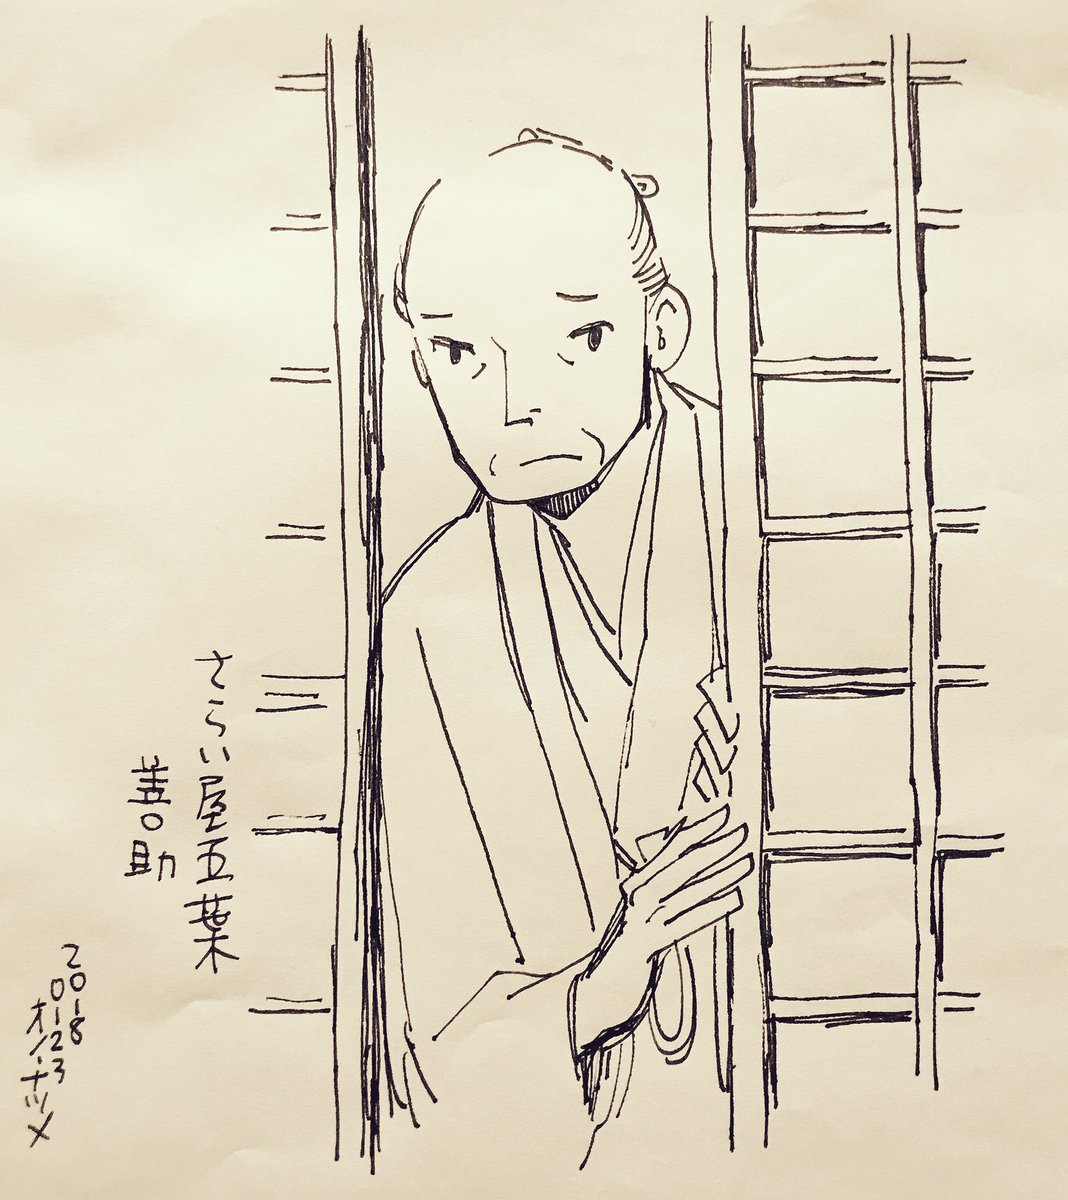 さらい屋五葉
善助
2018
0123
オノ・ナツメ